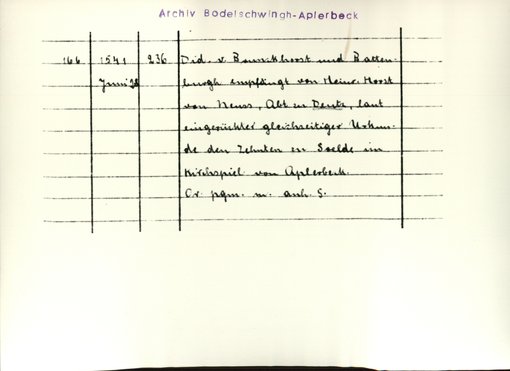 Archiv Bodelschwingh-Aplerbeck
166 1541 236 Did. v. Bronckhorst und Batten-
Juni 24 burgh empfängt von Heinr. Horst
von Neuss, Abt zu Deutz, laut
eingerückter gleichzeitiger Urkun-
de den Zehnten in Soelde im
Kirchspiel von Aplerbeck.
Or. pgm. m. anh. S.